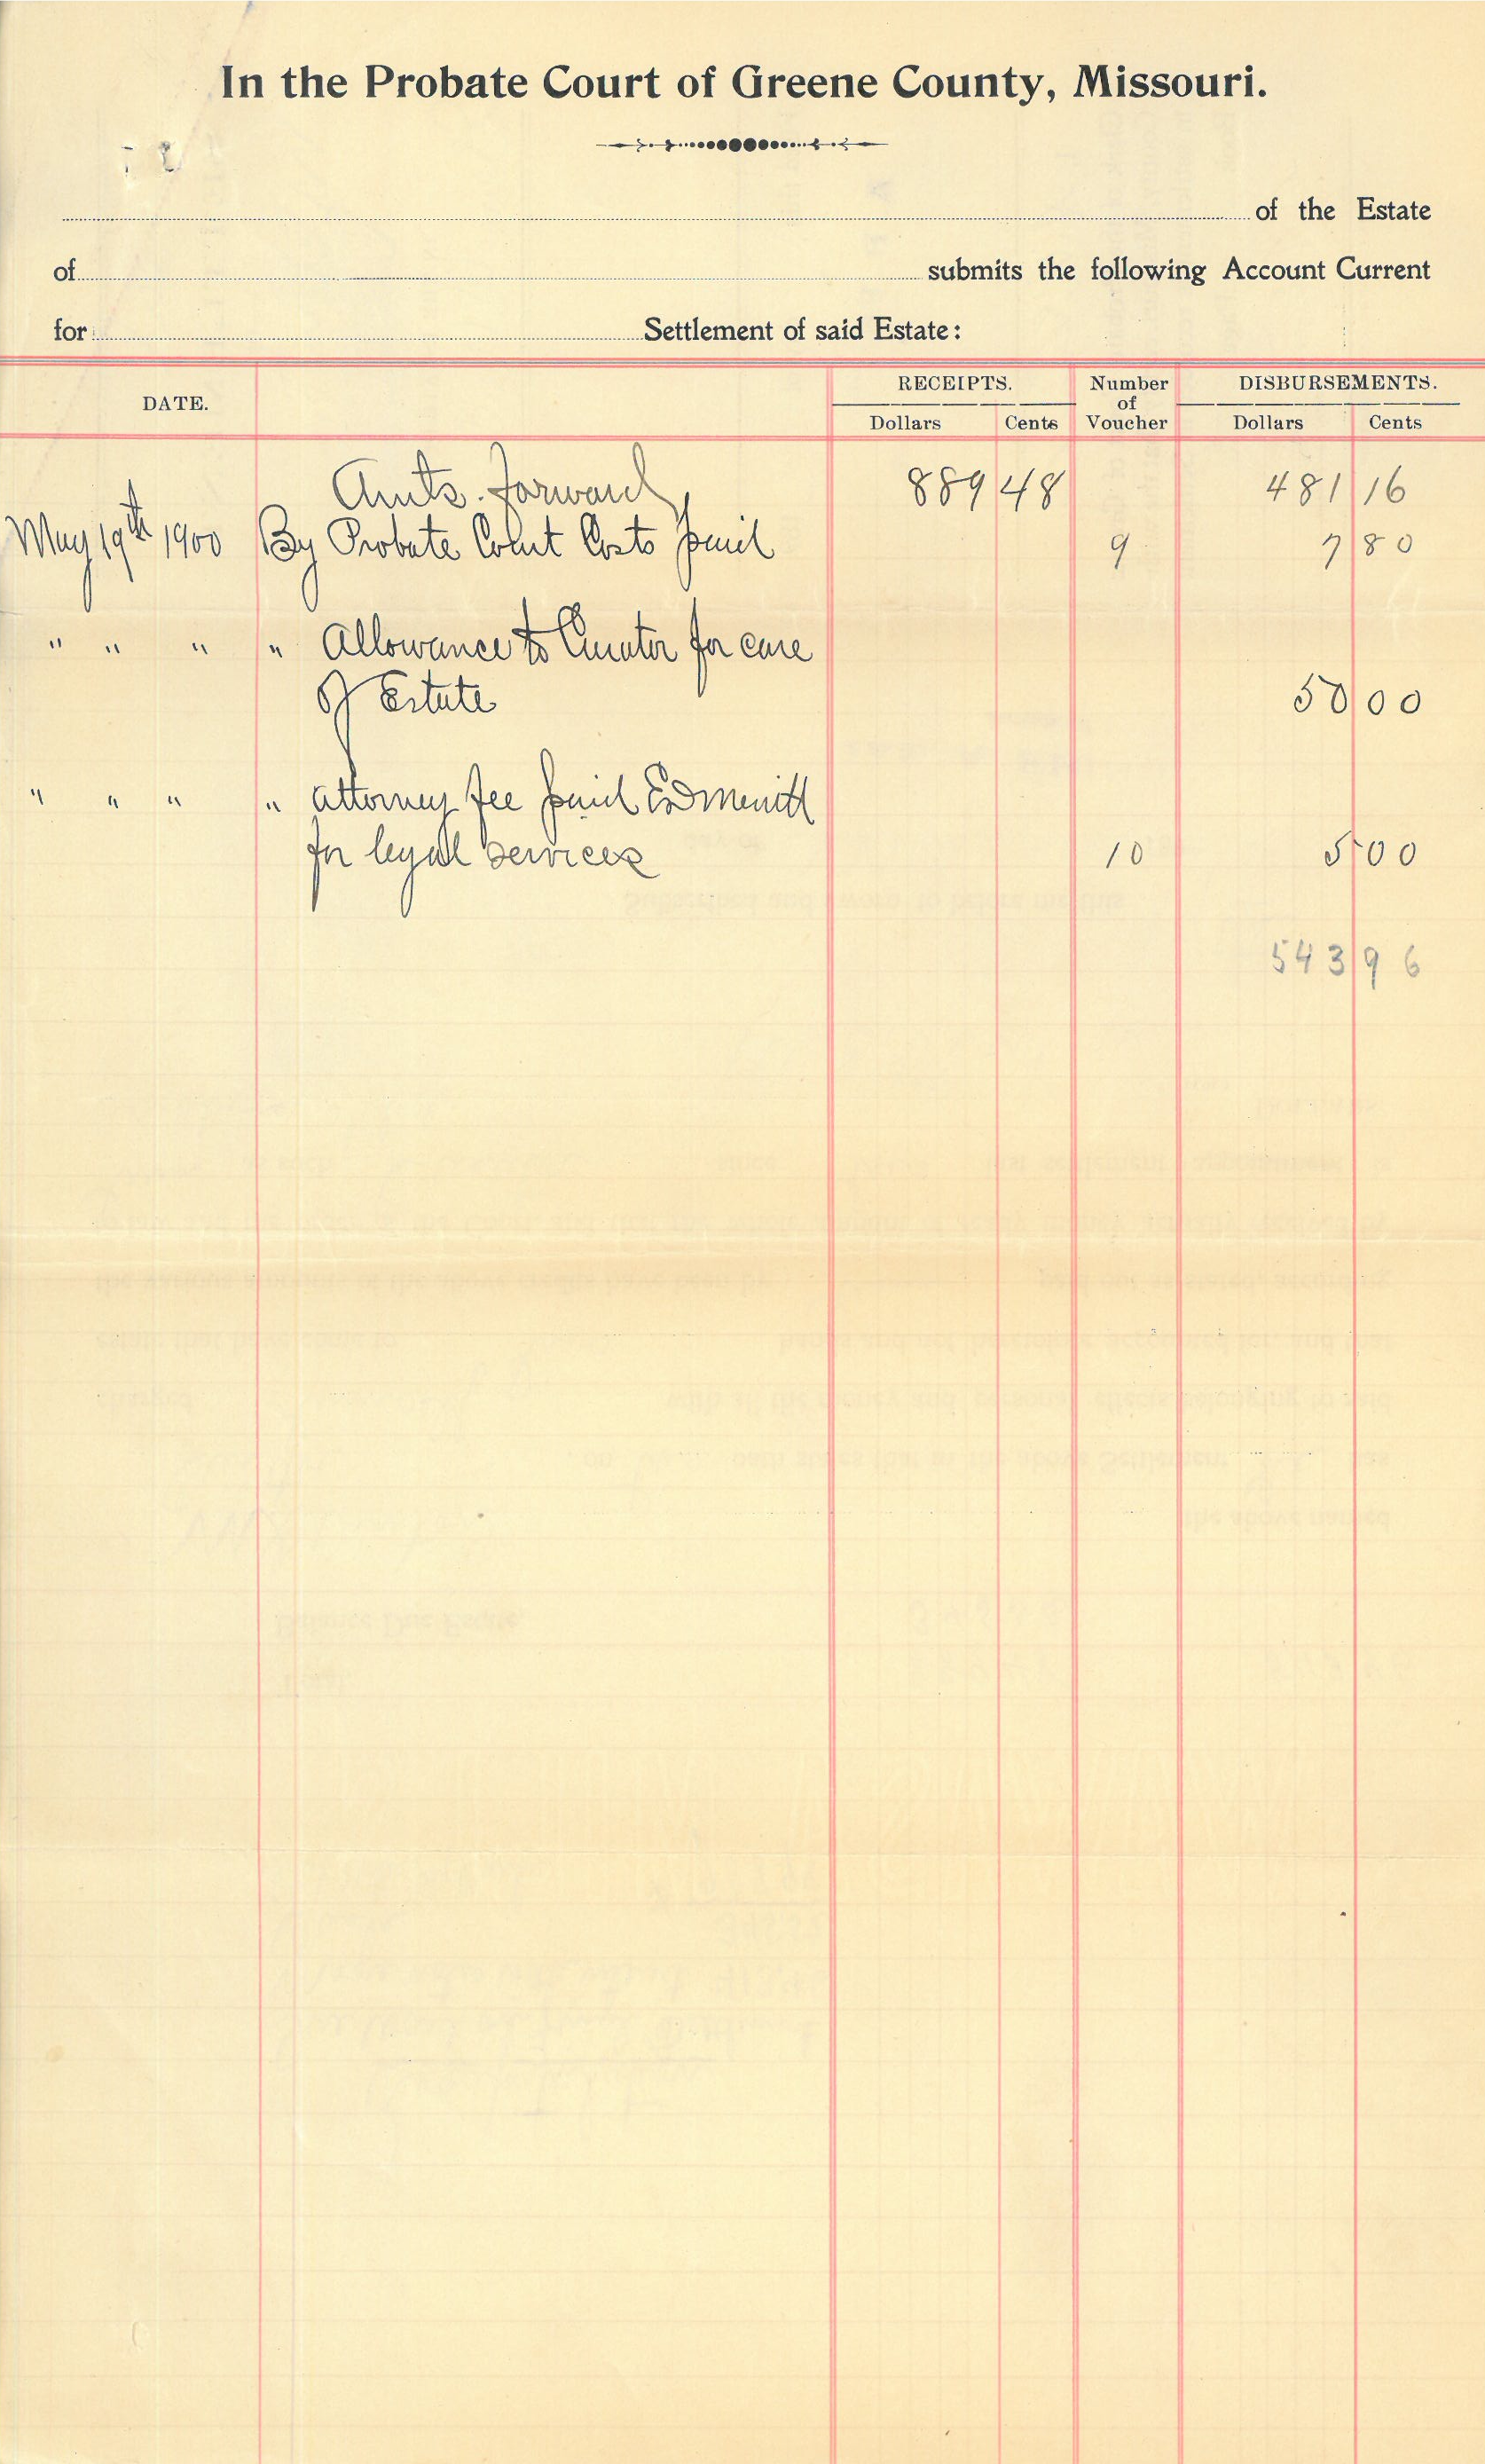 In the Probate Court of Greene County, Missouri.
of the Estate
of submits the following Account Current
for Settlement of said Estate:
DATE. RECEIPTS. Number of Voucher DISBURSEMENTS.
Dollars Cents Dollars Cents
Amts. forward 889 48 481 16
May 19th 1900 By Probate Court Costs paid 9 7 80
" " " " Allowance to Curator for care
of Estate 50 00
" " " " attorney fee paid Ed Merritt
for legal services 10 5 00
543 96